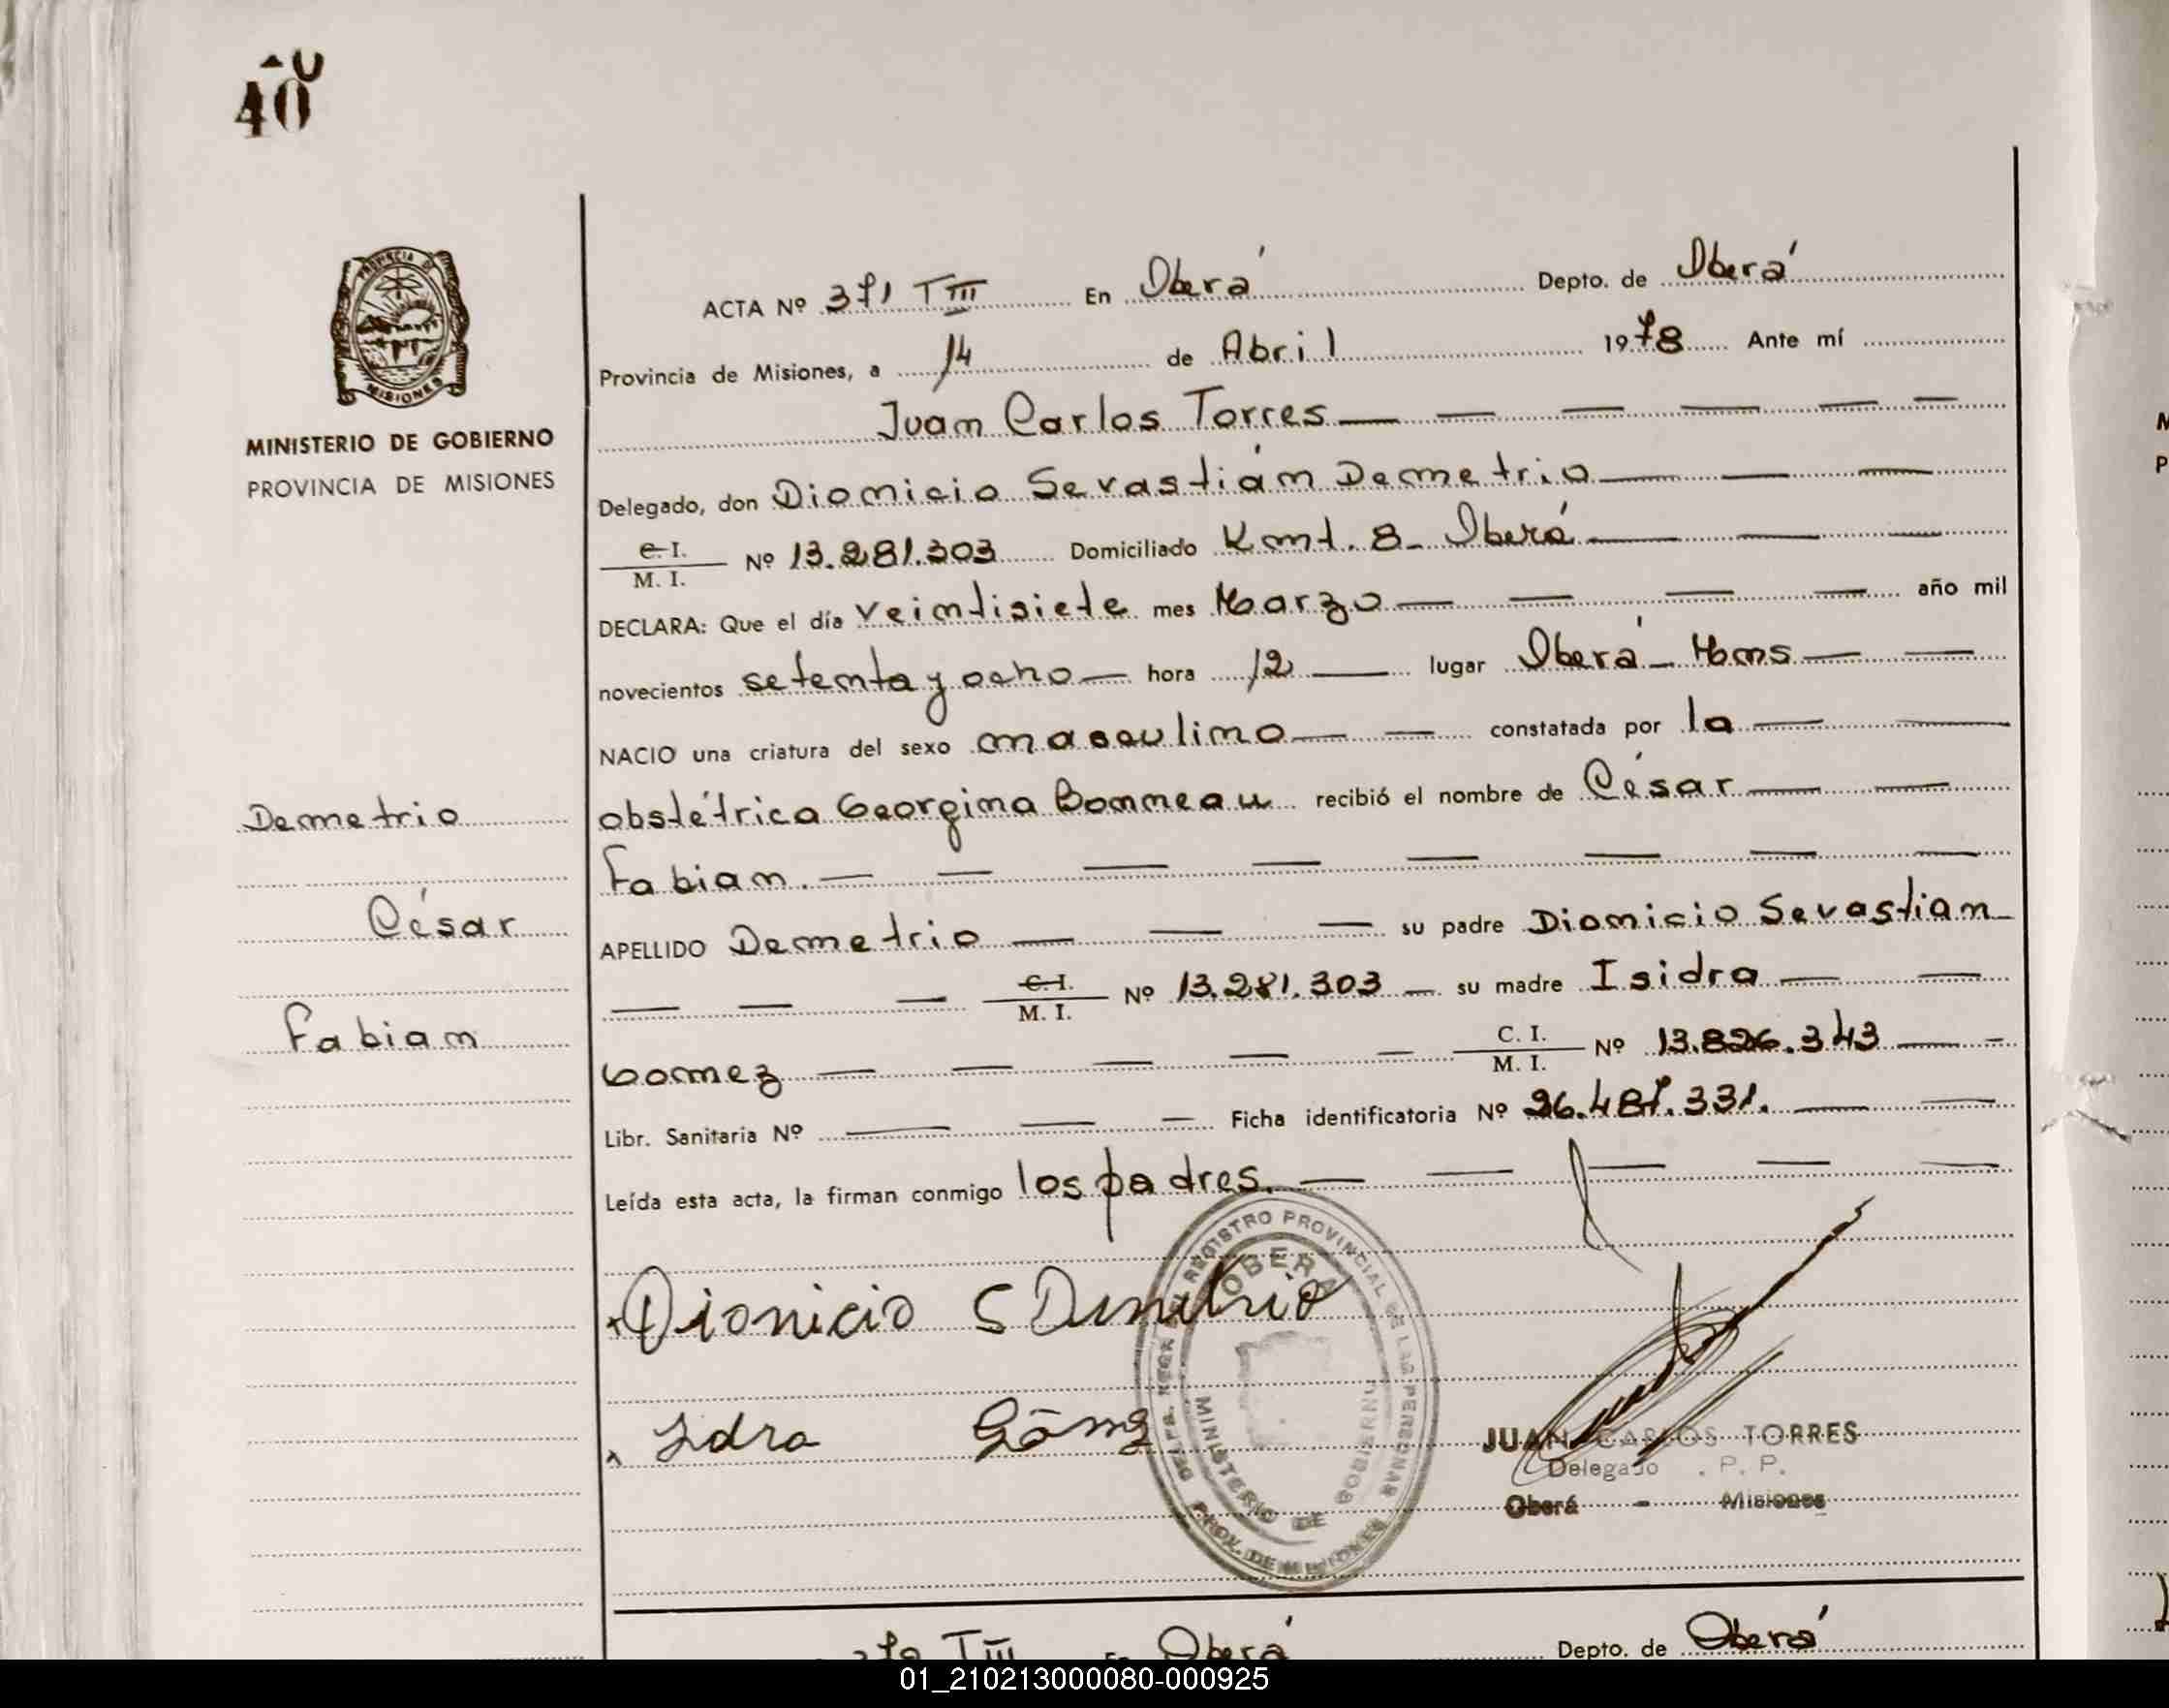 40
PROVINCIA D
MISIONES
MINISTERIO DE GOBIERNO
PROVINCIA DE MISIONES
Demetrio
César
Fabian
ACTA Nº 371 T III En Oberá Depto. de Oberá
Provincia de Misiones, a 14 de Abril 1978 Ante mí
Juan Carlos Torres
Delegado, don Dionicio Sevastián Demetrio
C. I.
M. I. Nº 13.281.303 Domiciliado Kmt. 8 - Oberá
DECLARA: Que el día veintisiete mes Marzo año mil
novecientos setenta y ocho hora 12 lugar Oberá - Mnes
NACIO una criatura del sexo masculino constatada por la
obstétrica Georgina Bonneau recibió el nombre de César
Fabian.
APELLIDO Demetrio su padre Dionicio Sevastian
C. I.
M. I. Nº 13.281.303 su madre Isidra
Gomez C. I.
M. I. Nº 13.826.343
Libr. Sanitaria Nº Ficha identificatoria Nº 26.487.331.
Leída esta acta, la firman conmigo los padres.
Dionicio S Demetrio
REGISTRO PROVINCIAL DE LAS PERSONAS
OBERA
MINISTERIO DE GOBIERNO
PROV. DE MISIONES
JUAN CARLOS TORRES
Delegado P. P.
Oberá - Misiones
T III En Oberá Depto. de Oberá
01_210213000080-000925